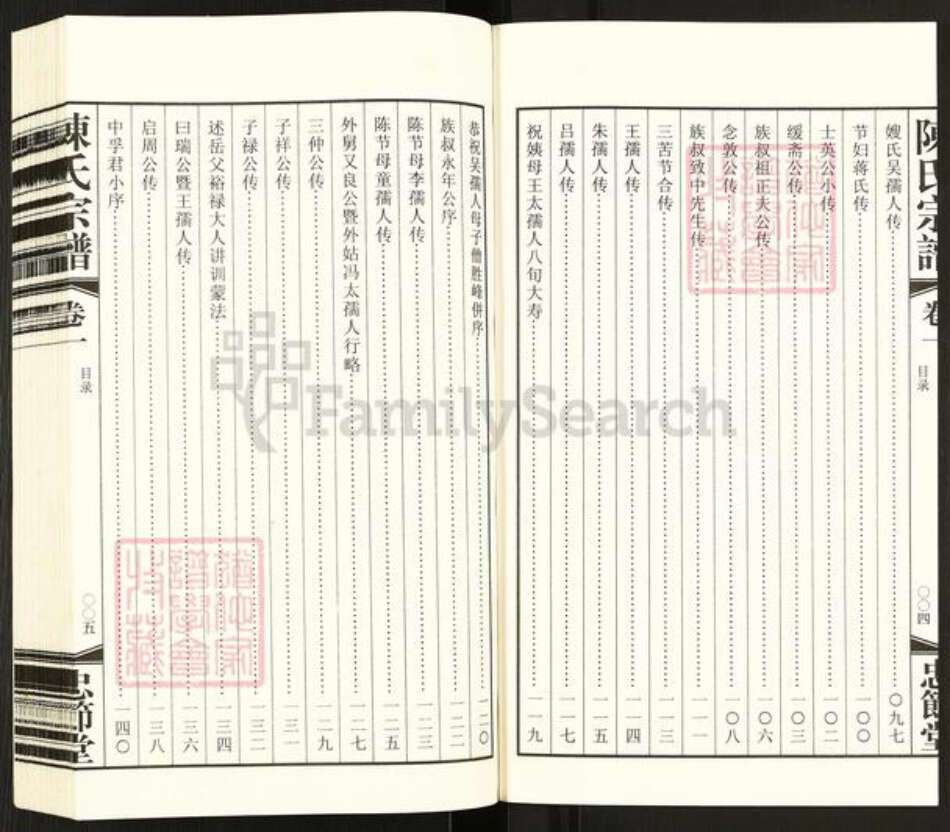 陳氏宗譜
卷一
目录
〇〇四
忠節堂
嫂氏吴孺人传 〇九七
节妇蒋氏传 一〇〇
士英公小传 一〇二
缓斋公传 一〇三
族叔祖正夫公传 一〇六
念敦公传 一〇八
族叔致中先生传 一一一
三苦节合传 一一三
王孺人传 一一四
朱孺人传 一一五
吕孺人传 一一七
祝姨母王太孺人八旬大寿 一一九
恭祝吴孺人母子 胜峰併序 一二〇
族叔永年公序 一二二
陈节母李孺人传 一二三
陈节母童孺人传 一二五
外舅又良公暨外姑冯太孺人行略 一二七
三仲公传 一二九
子祥公传
子禄公传
述岳父裕禄大人讲训蒙法 一三四
曰瑞公暨王孺人传 一三六
启周公传 一三八
中孚君小序 一四〇
陳氏宗譜
卷一
目录
〇〇五
忠節堂
FamilySearch